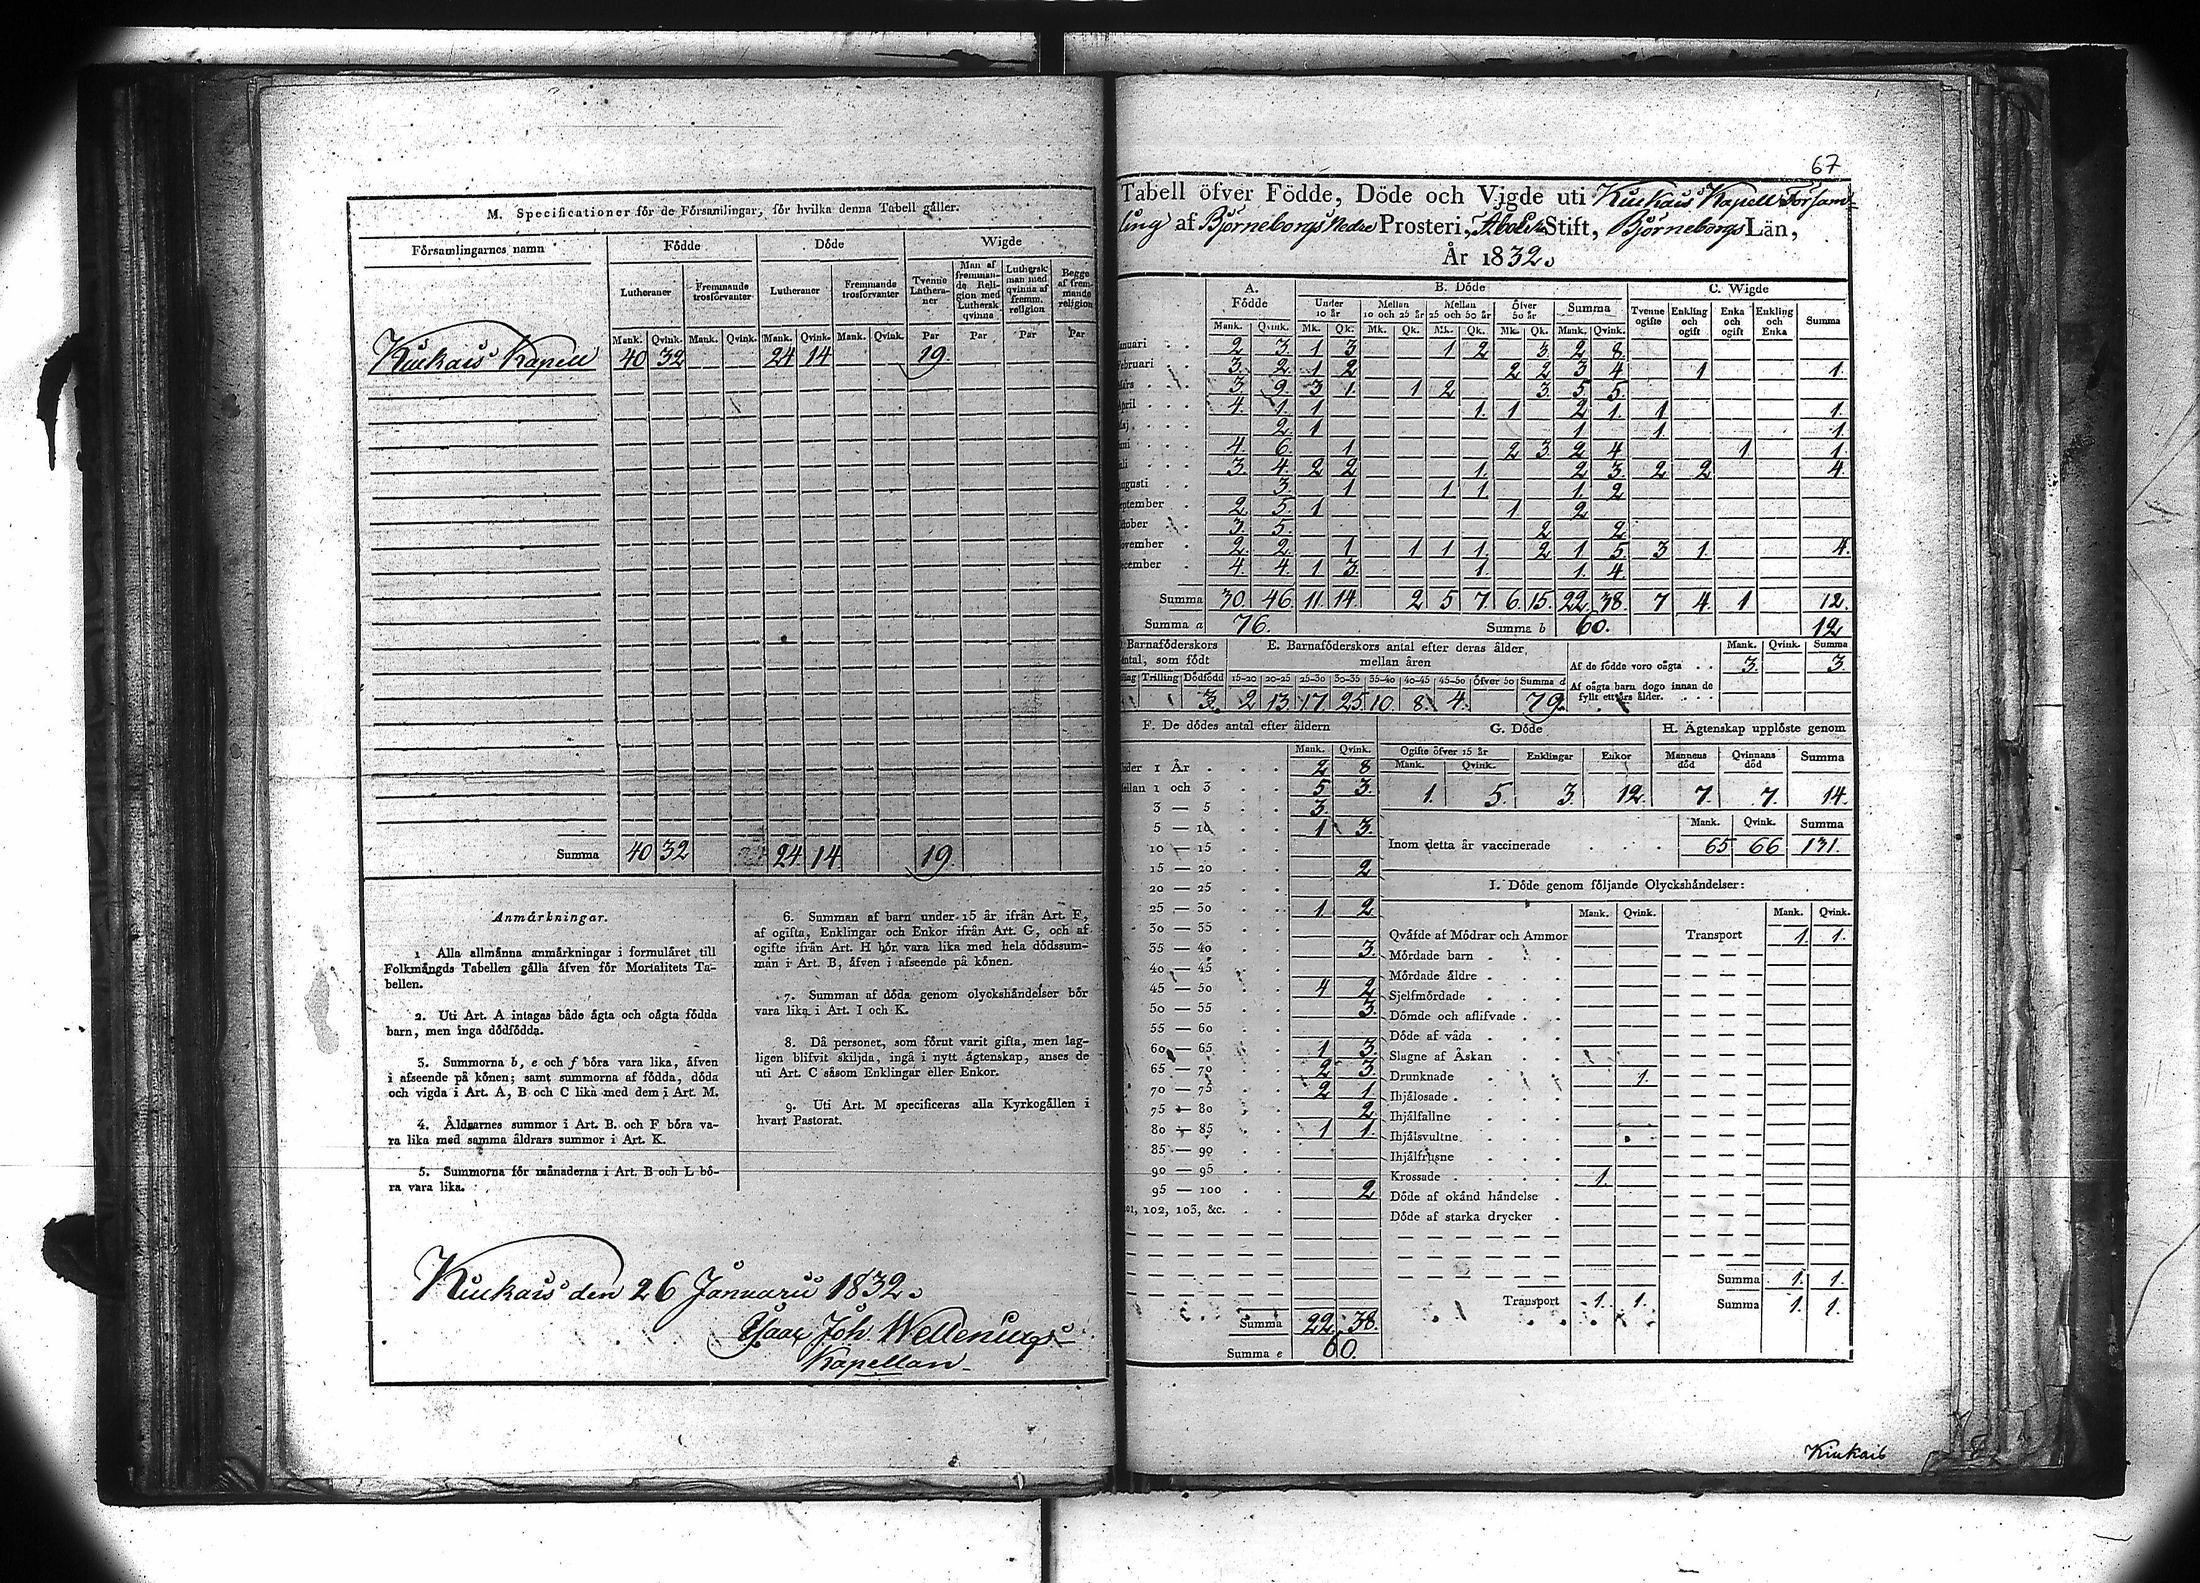 M. Specificationer för de Församlingar, för hvilka denna Tabell gäller.
Församlingarnes namn Födde Döde Wigde
Lutheraner Fremmande trosförvanter Lutheraner Fremmande trosförvanter Tvenne Lutheraner Man af fremmande Religion med Luthersk qvinna Luthersk man med qvinna af fremm. religion Begge af fremmande religion
Mank. Qvink. Mank. Qvink. Mank. Qvink. Mank. Qvink. Par Par Par Par
Kiukais Kapell 40 32 24 14 19.
Summa 40 32 24 14 19.
Anmärkningar.
1 Alla allmänna anmärkningar i formuläret till
Folkmängds Tabellen gälla äfven för Mortalitets Ta-
bellen.
2. Uti Art. A intagas både ägta och oägta födda
barn, men inga dödfödda.
3. Summorna b, e och f böra vara lika, äfven
i afseende på könen; samt summorna af födda, döda
och vigda i Art. A, B och C lika med dem i Art. M.
4. Åldrarnes summor i Art. B. och F böra va-
ra lika med samma åldrars summor i Art. K.
5. Summorna för månaderna i Art. B och L bö-
ra vara lika.
6. Summan af barn under 15 år ifrån Art. F,
af ogifta, Enklingar och Enkor ifrån Art. G, och af
ogifte ifrån Art. H bör vara lika med hela dödssum-
man i Art. B, äfven i afseende på könen.
7. Summan af döda genom olyckshändelser bör
vara lika i Art. I och K.
8. Då personer, som förut varit gifta, men lag-
ligen blifvit skiljda, ingå i nytt ägtenskap, anses de
uti Art. C såsom Enklingar eller Enkor.
9. Uti Art. M specificeras alla Kyrkogällen i
hvart Pastorat.
Kiukais den 26 Januarii 1832.
Isaac Joh. Wellenius
Kapellan
67
Tabell öfver Födde, Döde och Vigde uti Kiukais Kapell Försam-
ling af Björneborgs Nedre Prosteri, Åbo Stift, Björneborgs Län,
År 1832.
A. Födde B. Döde C. Wigde
Under 10 år Mellan 10 och 25 år Mellan 25 och 50 år Öfver 50 år Summa Tvenne ogifte Enkling och ogift Enka och ogift Enkling och Enka Summa
Mank. Qvink. Mk. Qk. Mk. Qk. Mk. Qk. Mk. Qk. Mank. Qvink.
anuari 2 3. 1 3 1 2 3. 2 8.
ebruari 3. 2. 1 2 2 2 3 4 1 1.
Mars 3. 9. 3 1. 1 2 3. 5 5.
April 4. 1. 1 1. 1 2 1. 1 1.
Maj 2. 1 1 1. 1
uni 4 6. 1 2 3. 2 4 1 1
uli 3. 4. 2 2 1. 2 3. 2 2 4.
ugusti 3. 1 1 1. 1. 2
eptember 2. 5. 1 1 2
ktober 3. 5. 2 2
ovember 2. 2. 1 1 1 1. 2 1 5. 3 1. 4.
ecember 4. 4. 1 3. 1. 1. 4.
Summa 30. 46. 11 14. 2 5 7. 6. 15. 22. 38. 7 4. 1 12.
Summa a 76. Summa b 60. 12
Barnaföderskors antal, som födt E. Barnaföderskors antal efter deras ålder mellan åren Mank. Qvink. Summa
Trilling Dödfödd 15-20 20-25 25-30 30-35 35-40 40-45 45-50 Öfver 50 Summa d
3. 2 13 17. 25. 10. 8. 4. 79.
Af de födde voro oägta 3. 3.
Af oägta barn dogo innan de fyllt ett års ålder.
F. De dödes antal efter åldern
Mank. Qvink.
nder 1 År 2 8
ellan 1 och 3 5 3.
3 — 5 3.
5 — 10 1 3.
10 — 15
15 — 20 2
20 — 25
25 — 30 1 2
30 — 35
35 — 40 3.
40 — 45
45 — 50 4 2
50 — 55 3.
55 — 60
60 — 65 1 3.
65 — 70 2 3.
70 — 75 2 1
75 — 80 2
80 — 85 1 1
85 — 90
90 — 95
95 — 100 2
101, 102, 103, &c.
Summa 22. 38.
Summa e 60.
G. Döde
Ogifte öfver 15 år Enklingar Enkor
Mank. Qvink.
1. 5. 3. 12.
H. Ägtenskap upplöste genom
Mannens död Qvinnans död Summa
7. 7. 14.
Mank. Qvink. Summa
Inom detta år vaccinerade 65 66 131.
I. Döde genom följande Olyckshändelser:
Mank. Qvink. Mank. Qvink.
Qväfde af Mödrar och Ammor Transport 1. 1.
Mördade barn
Mördade äldre
Sjelfmördade
Dömde och aflifvade
Döde af våda
Slagne af Åskan
Drunknade 1.
Ihjälosade
Ihjälfallne
Ihjälsvultne
Ihjälfrusne
Krossade 1.
Döde af okänd händelse
Döde af starka drycker
Summa 1. 1.
Transport 1. 1. Summa 1. 1.
Kiukais